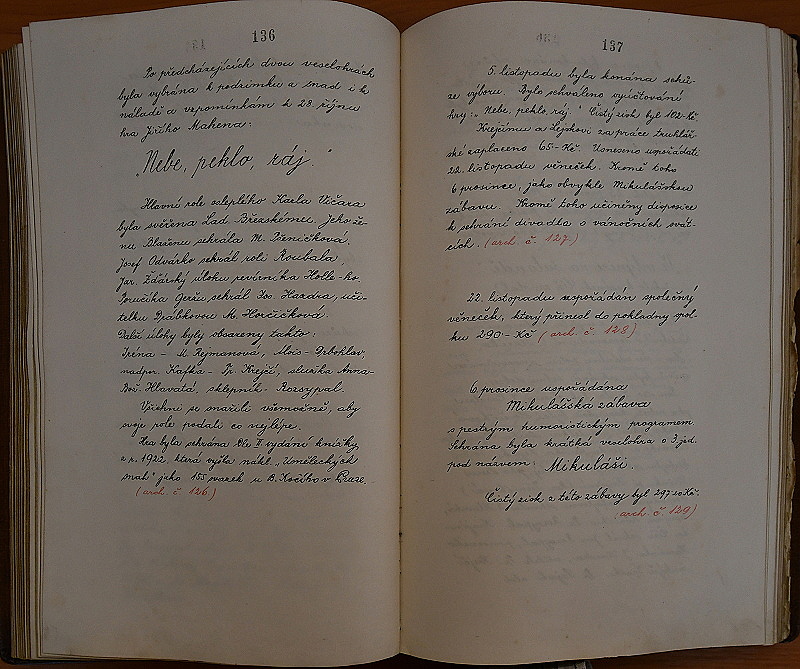 136
Po předcházejících dvou veselohrách
byla vybrána k podzimku a snad i k
náladě a vzpomínkám k 28. říjnu
hra Jiřího Mahena:
"Nebe, peklo, ráj."
Hlavní role osleplého Karla Vičara
byla svěřena Lad. Březskému. Jeho že-
nu Blaženu sehrála M. Pšeničková,
Josef Odvárko sehrál roli Roubala,
Jar. Žďárský úlohu revírníka Holle-ho.
Poručíka Geriu sehrál Jos. Hazdra, uči-
telku Drábkovou M. Horčičková.
Další úlohy byly obsazeny takto:
Iréna - M. Rejmanova, Alois - Drbohlav,
nadpor. Kafka - Fr. Krejčí, služka Anna-
Bož. Hlavatá, sklepník - Rozsypal.
Všichni se snažili všemožně, aby
svoje role podali co nejlépe.
Hra byla sehrána dle II vydání knížky
z r. 1922, která vyšla nákl. "Uměleckých
snah" jako 155 svazek u B. Kočího v Praze.
(arch. č. 126.)
137
5. listopadu byla konána schů-
ze výboru. Bylo schváleno vyúčtování
hry: "Nebe, peklo, ráj." Čistý zisk byl 102-Kč.
Krejčímu a Lejskovi za práce truhlář-
ské zaplaceno 65-Kč. Usneseno uspořádati
22. listopadu věneček. Kromě toho
6 prosince, jako obvykle Mikulášskou
zábavu. Kromě toho učiněny disposice
k sehrání divadla o vánočních svát-
cích. (arch. č. 127.)
22. listopadu uspořádán společný
věneček, který přinesl do pokladny spol-
ku 290-Kč (arch. č. 128)
6. prosince uspořádána
Mikulášská zábava
s pestrým humoristickým programem.
Sehrána byla krátká veselohra o 3 jed.
pod názvem: Mikuláši.
Čistý zisk z této zábavy byl 297.10 Kč.
(arch. č. 129)